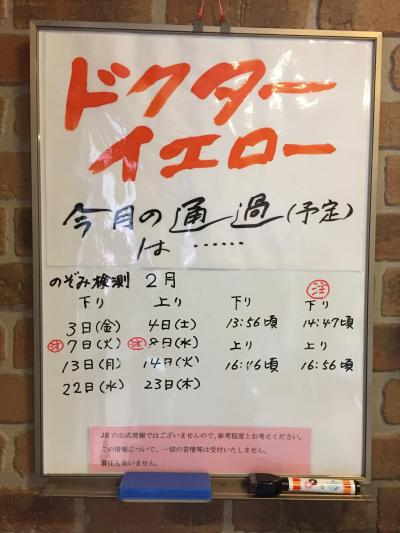 ドクター
イエロー
今月の通過(予定)
は……
のぞみ検測 2月
注
下り 上り 下り 下り
3日(金) 4日(土) 13:56頃 14:47頃
注7日(火) 注8日(水) 上り 上り
13日(月) 14日(火) 16:46頃 16:56頃
22日(水) 23日(木)
JRの公式情報ではございませんので、参考程度とお考えください。
この情報について、一切の苦情等は受付いたしません。
責任も負いません。